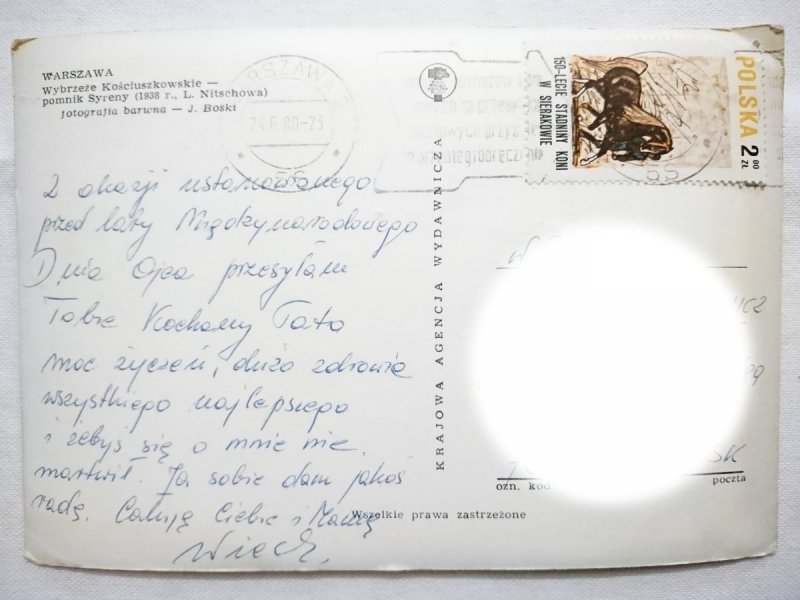 WARSZAWA
Wybrzeże Kościuszkowskie —
pomnik Syreny (1938 r., L. Nitschowa)
fotografia barwna — J. Boski
RSZAWA 2
24.6.80-23
55
150-LECIE STADNINY KONI
W SIERAKOWIE
POLSKA 2 00 ZŁ
55
Z okazji ustanowionego
przed laty Międzynarodowego
Dnia Ojca przesyłam
Tobie Kochany Tato
moc życzeń, dużo zdrowia
wszystkiego najlepszego
i żebyś się o mnie nie
martwił. Ja sobie dam jakoś
radę. Całuję Ciebie i Mamę
KRAJOWA AGENCJA WYDAWNICZA
ICZ
SK
ozn. kod
poczta
Wszelkie prawa zastrzeżone